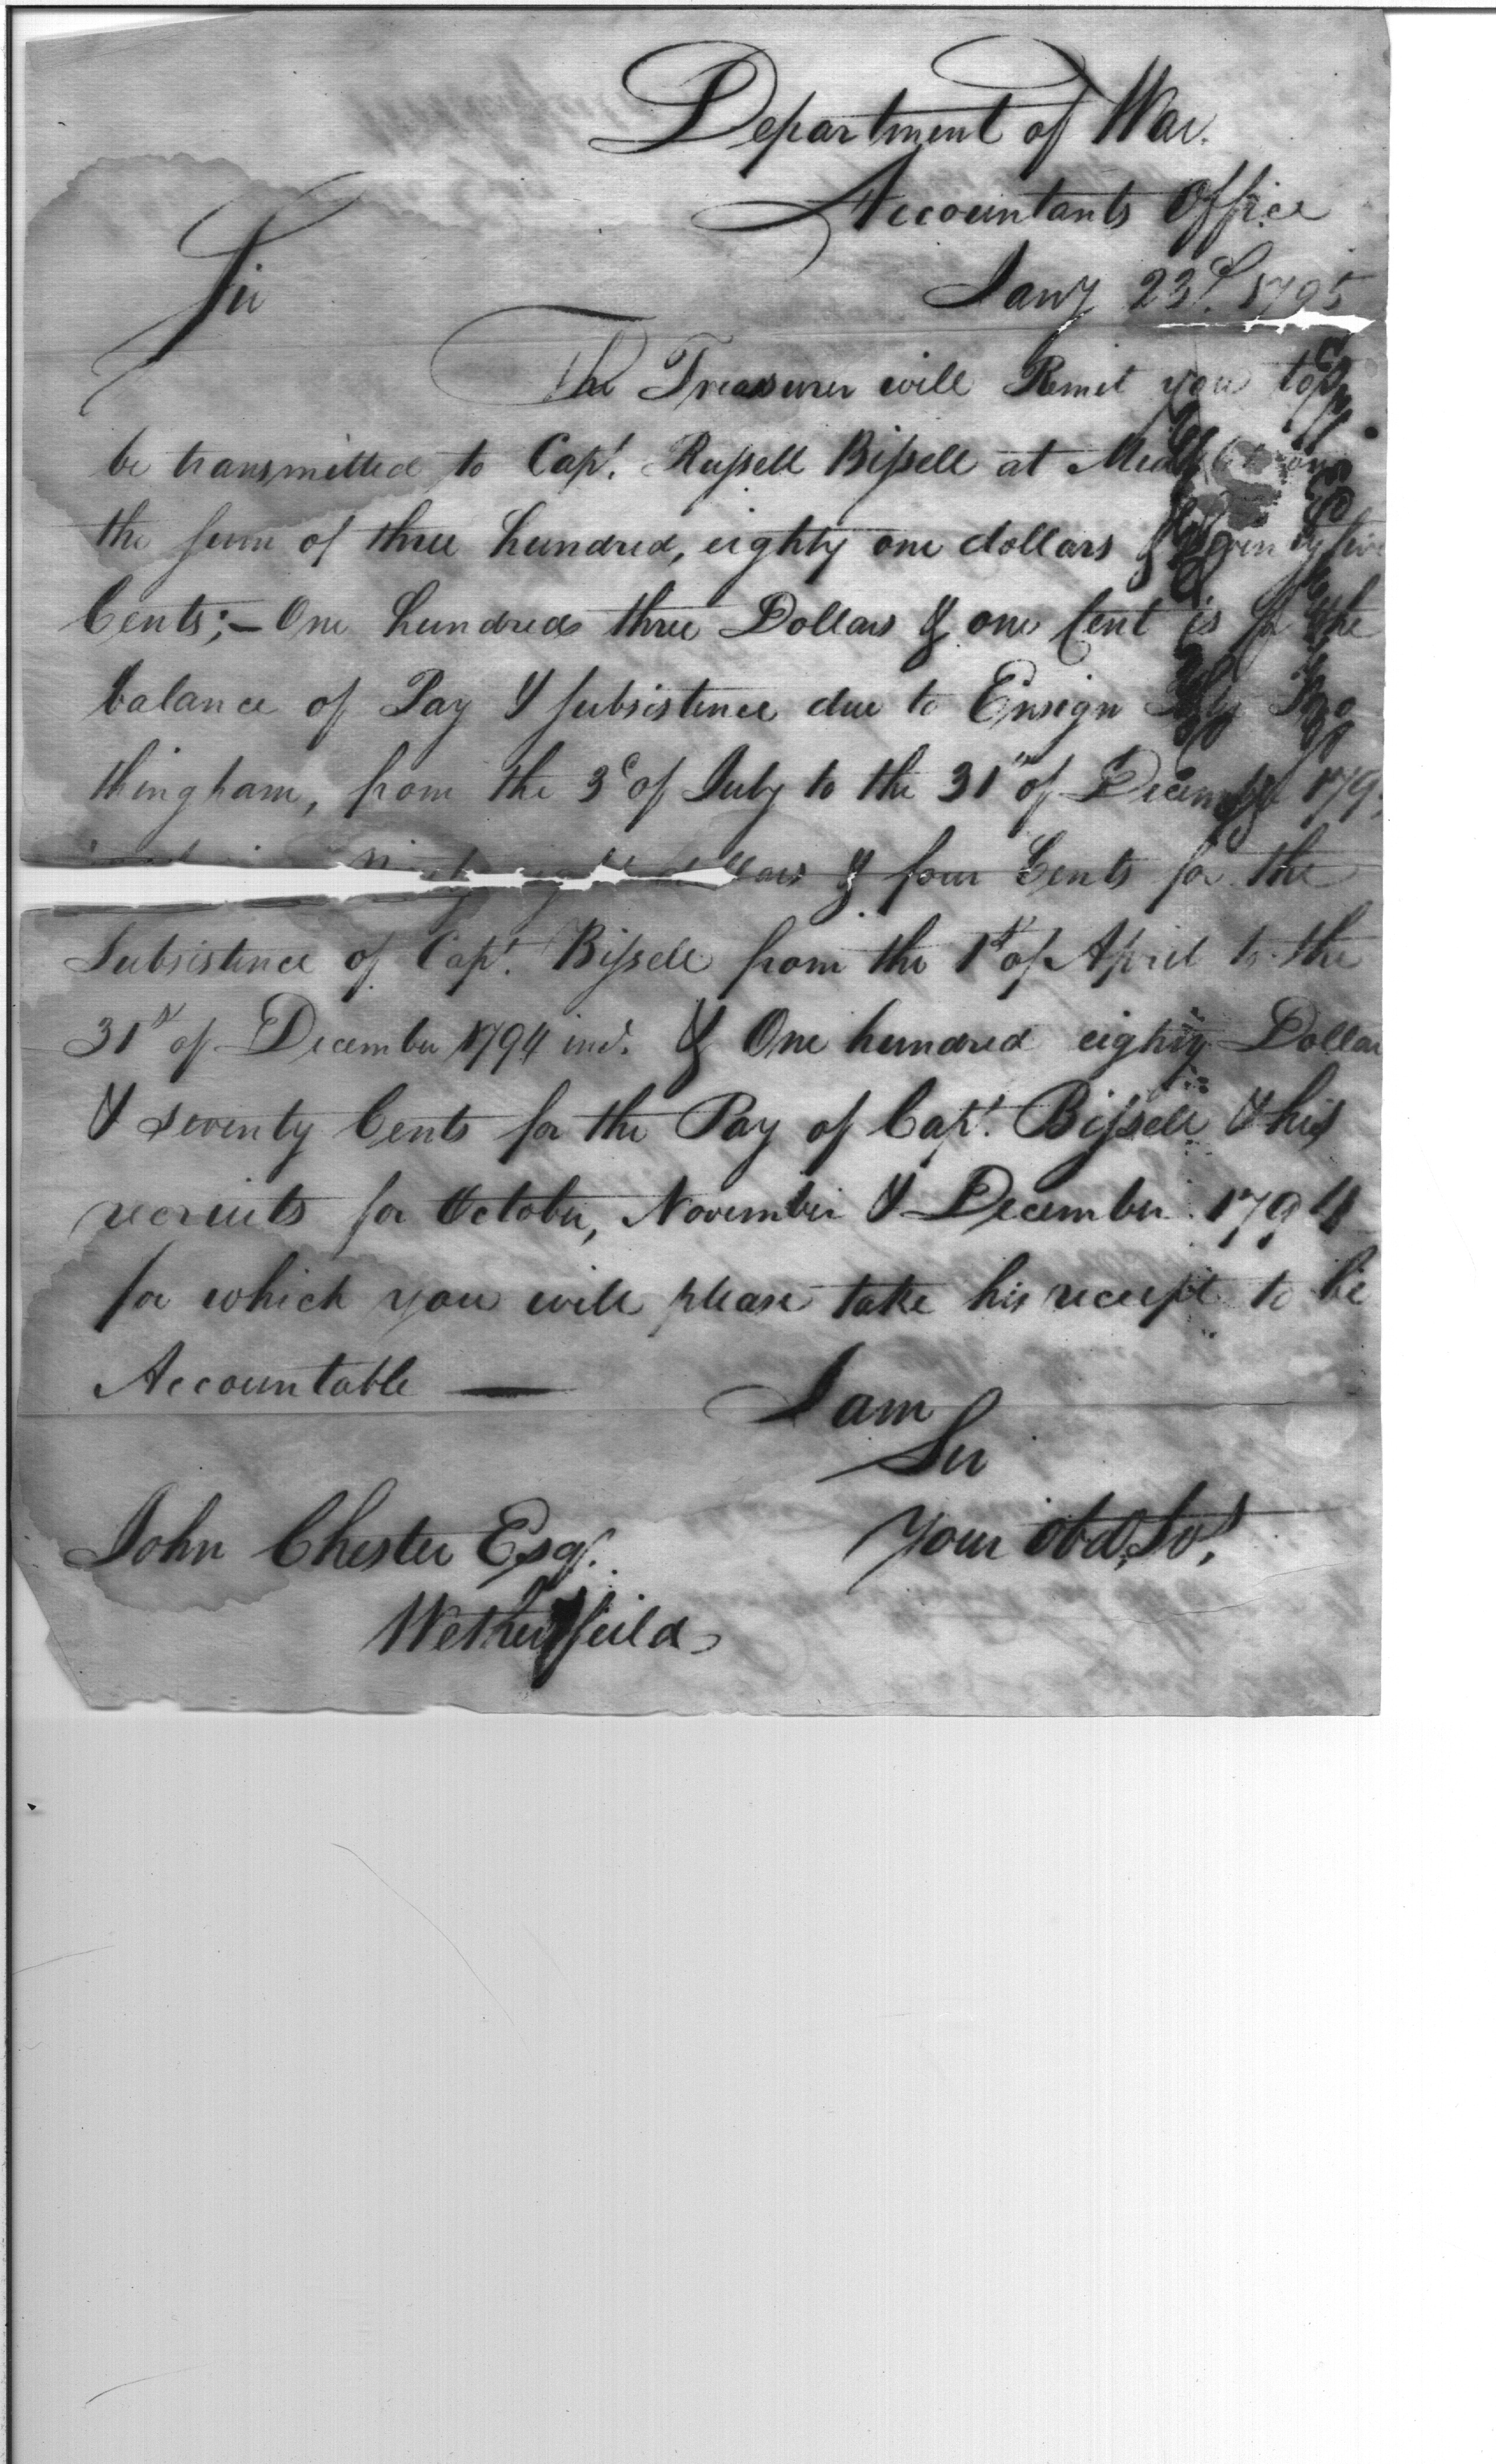 Department of War.
Accountants Office
Sir
Jany 23d. 1795
The Treasurer will Remit you to
be transmitted to Capt. Russell Bissell at
the sum of three hundred, eighty one dollars & Seventy five
Cents;— One hundred three Dollars & one Cent is for the
balance of Pay & subsistence due to Ensign
thingham, from the 3d of July to the 31st of December 179
dollars & four Cents for the
Subsistence of Capt. Bissell from the 1st of April to the
31st of December 1794 incl. & One hundred eighty Dollar
& seventy Cents for the Pay of Capt. Bissell & his
recruits for October, November & December 1794
for which you will please take his receipt to be
Accountable —
I am
Sir
Your obd. Svt.
John Chester Esqr.
Wethersfeild